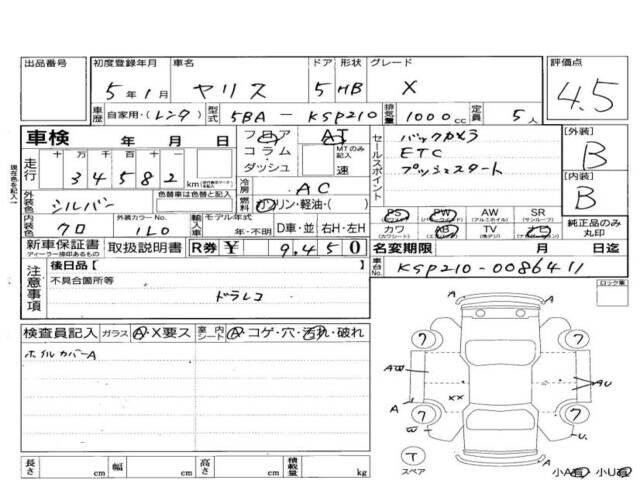 出品番号 初度登録年月 車名 ドア 形状 グレード 評価点
5年1月 ヤリス 5 HB X 4.5
車歴 自家用・(レンタ) 型式 5BA-KSP210 排気量 1000cc 定員 5人
車検 年 月 日
フロア AT
コラム MTのみ記入
ダッシュ 速
走行 十万千百十
34582 km
現在色を記入
外装色 シルバー 色替車は色替と記入
冷房 AC
燃料 ガソリン・軽油・( )
内装色 クロ 外装カラーNo. 1L0 輸入車 モデル年式 年・不明 D車・並 右H・左H
セールスポイント
バックカメラ
ETC
プッシュスタート
[外装]
B
[内装]
B
PS PW AW SR
(パワステ) (パワーウィンドウ) (アルミホイル) (サンルーフ)
カワ AB TV ナビ
(カワシート) (エアバッグ)
純正品のみ丸印
新車保証書 取扱説明書 R券 ¥ 9,450
ディーラー捺印あるもの
名変期限 月 日迄
台車No. KSP210-0086411
注意事項
後日品[ ]
不具合箇所等
ドラレコ
ロック車
検査員記入 ガラス A・X要ス 室内シート A・コゲ・穴・汚れ・破れ
ホイルカバーA
A
7 7
AW AU
XX
A A
7 7
W U
T
スペア
小A有 小U有
長さ cm 幅 cm 高さ cm 積載量 kg